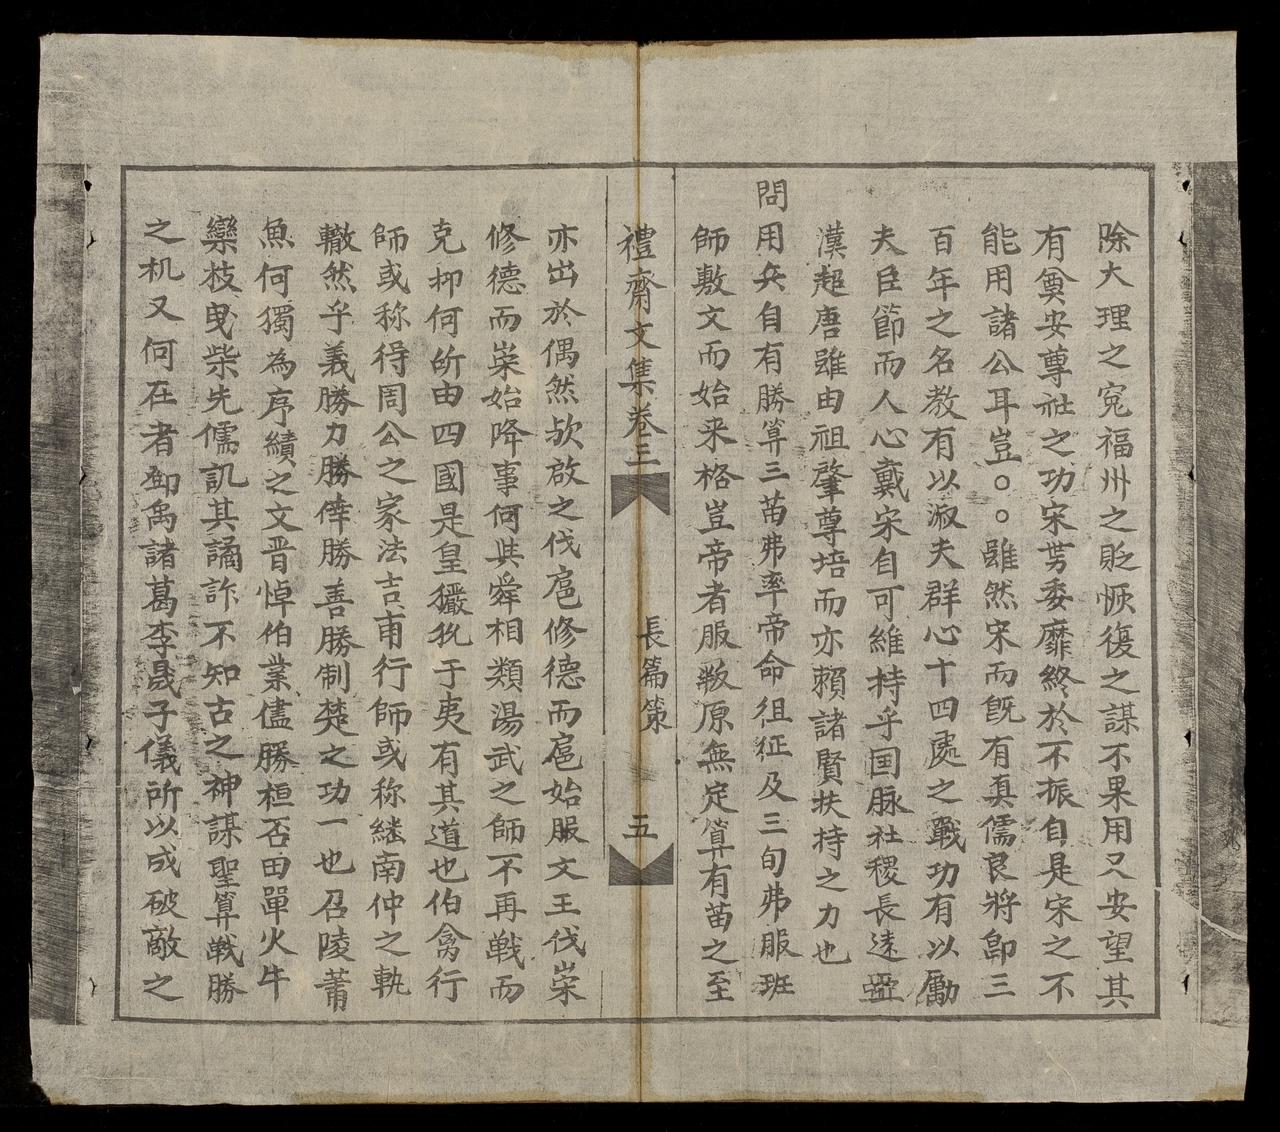 除大理之寃福州之貶恢復之謀不果用又安望其
有奠安尊社之功宋甞委靡終於不振自是宋之不
能用諸公耳豈○○雖然宋而既有真儒良將卽三
百年之名教有以淑夫群心十四處之戰功有以勵
夫臣節而人心戴宋自可維持乎国脉社稷長遠
漢超唐雖由祖肇尊培而亦賴諸賢扶持之力也
問用兵自有勝算三苗弗率帝命徂征及三旬弗服班
師敷文而始来格豈帝者服叛原無定算有苗之至
禮齋文集卷三 長篇策 五
亦出於偶然欤啟之伐扈修德而扈始服文王伐崇
修德而崇始降事何其舜相類湯武之師不再戰而
克抑何所由四國是皇玁狁于夷有其道也伯禽行
師或称得周公之家法吉甫行師或称継南仲之軌
轍然乎義勝力勝倖勝善勝制楚之功一也召陵莆
魚何獨為序績之文晋悼伯業儘勝桓否田單火牛
欒枝曳柴先儒訊其譎詐不知古之神謀聖算戰勝
之机又何在者鄧禹諸葛李晟子儀所以成破敵之